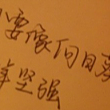 要像向日葵
坚强